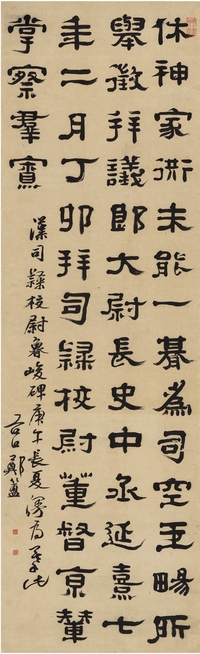 休神家衖未能一朞為司空王暢所
舉徵拜議郎大尉長史中丞延熹七
年二月丁卯拜司隸校尉董督京輦
掌察羣寮
漢司隸校尉魯峻碑庚午長夏
鄭簠